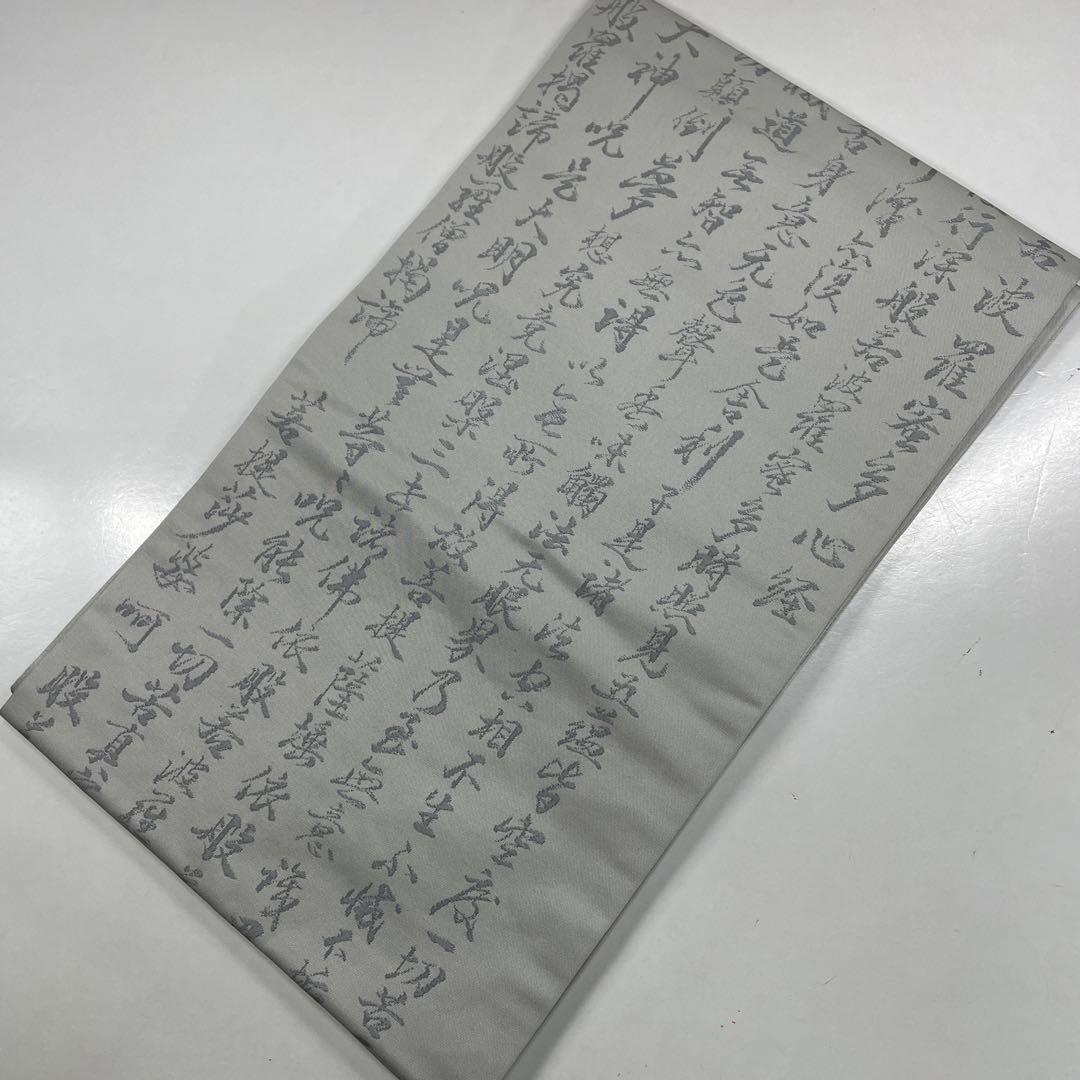 若波羅蜜多心経
行深般若波羅蜜多時照見五蘊皆空度一切苦
亦復如是舍利子是諸法空相不生不滅不垢
舌身意无色聲香味觸法无眼界乃至無意識
道無智亦無得以無所得故菩提薩埵依般
顛倒夢想究竟涅槃三世諸佛依般若波羅
大神呪是大明呪是無等〻呪能除一切苦真實
般羅揭諦般羅僧揭諦菩提莎婆呵般若